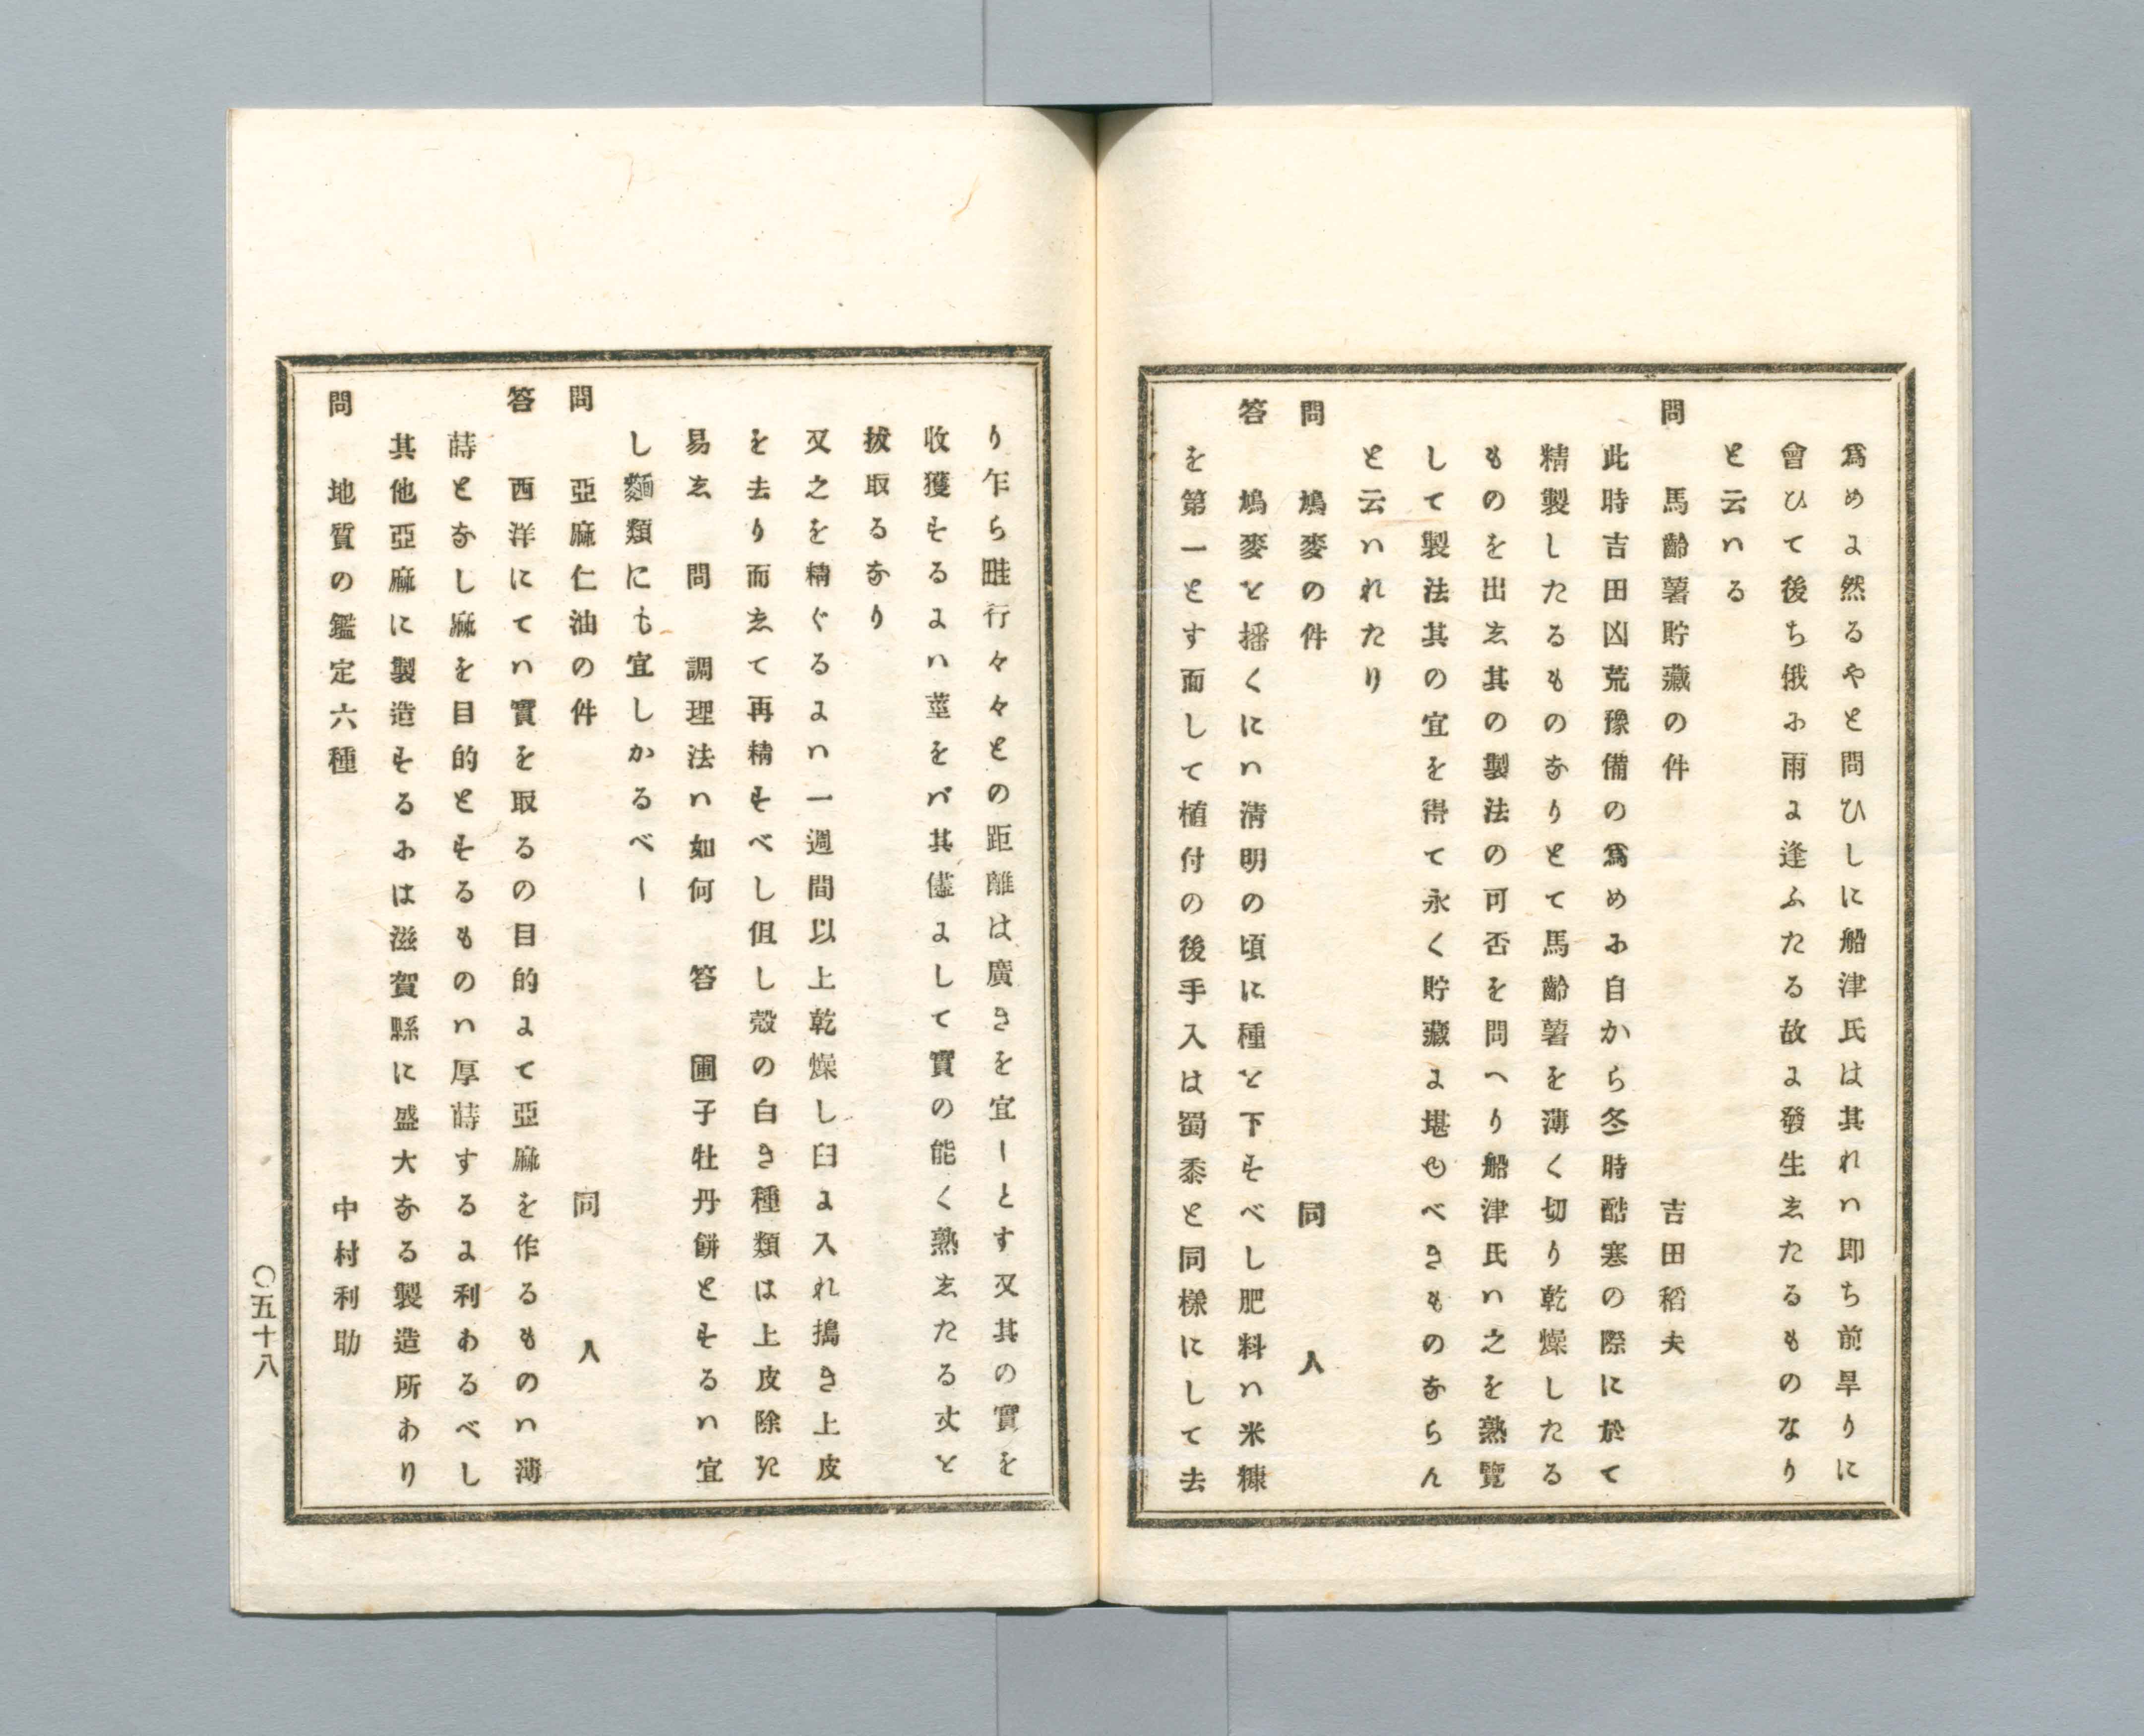 爲めに然るやと問ひしに船津氏は其れハ即ち前旱りに
會ひて後ち俄に雨に逢ふたる故に發生したるものなり
と云ハる
問　馬齡薯貯藏の件　吉田稻夫
此時吉田凶荒豫備の爲めに自から冬時酷寒の際に於て
精製したるものなりとて馬齡薯を薄く切り乾燥したる
ものを出し其の製法の可否を問へり船津氏ハ之を熟覽
して製法其の宜を得て永く貯藏に堪ゆべきものならん
と云ハれたり
問　鳩麥の件　同人
答　鳩麥を播くにハ淸明の頃に種を下すべし肥料ハ米糠
を第一とす而して植付の後手入は蜀黍と同樣にして去
り乍ら畦行々々との距離は廣きを宜しとす又其の實を
收獲するにハ莖をバ其儘にして實の能く熟したる丈を
拔取るなり
又之を精ぐるにハ一週間以上乾燥し臼に入れ搗き上皮
を去り而して再精すべし伹し殼の白き種類は上皮除き
易し　問　調理法ハ如何　答　團子牡丹餅とするハ宜
し麵類にも宜しかるべし
問　亞麻仁油の件　同人
答　西洋にてハ實を取るの目的にて亞麻を作るものハ薄
蒔となし麻を目的とするものハ厚蒔するに利あるべし
其他亞麻に製造するには滋賀縣に盛大なる製造所あり
問　地質の鑑定六種　中村利助
〇五十八